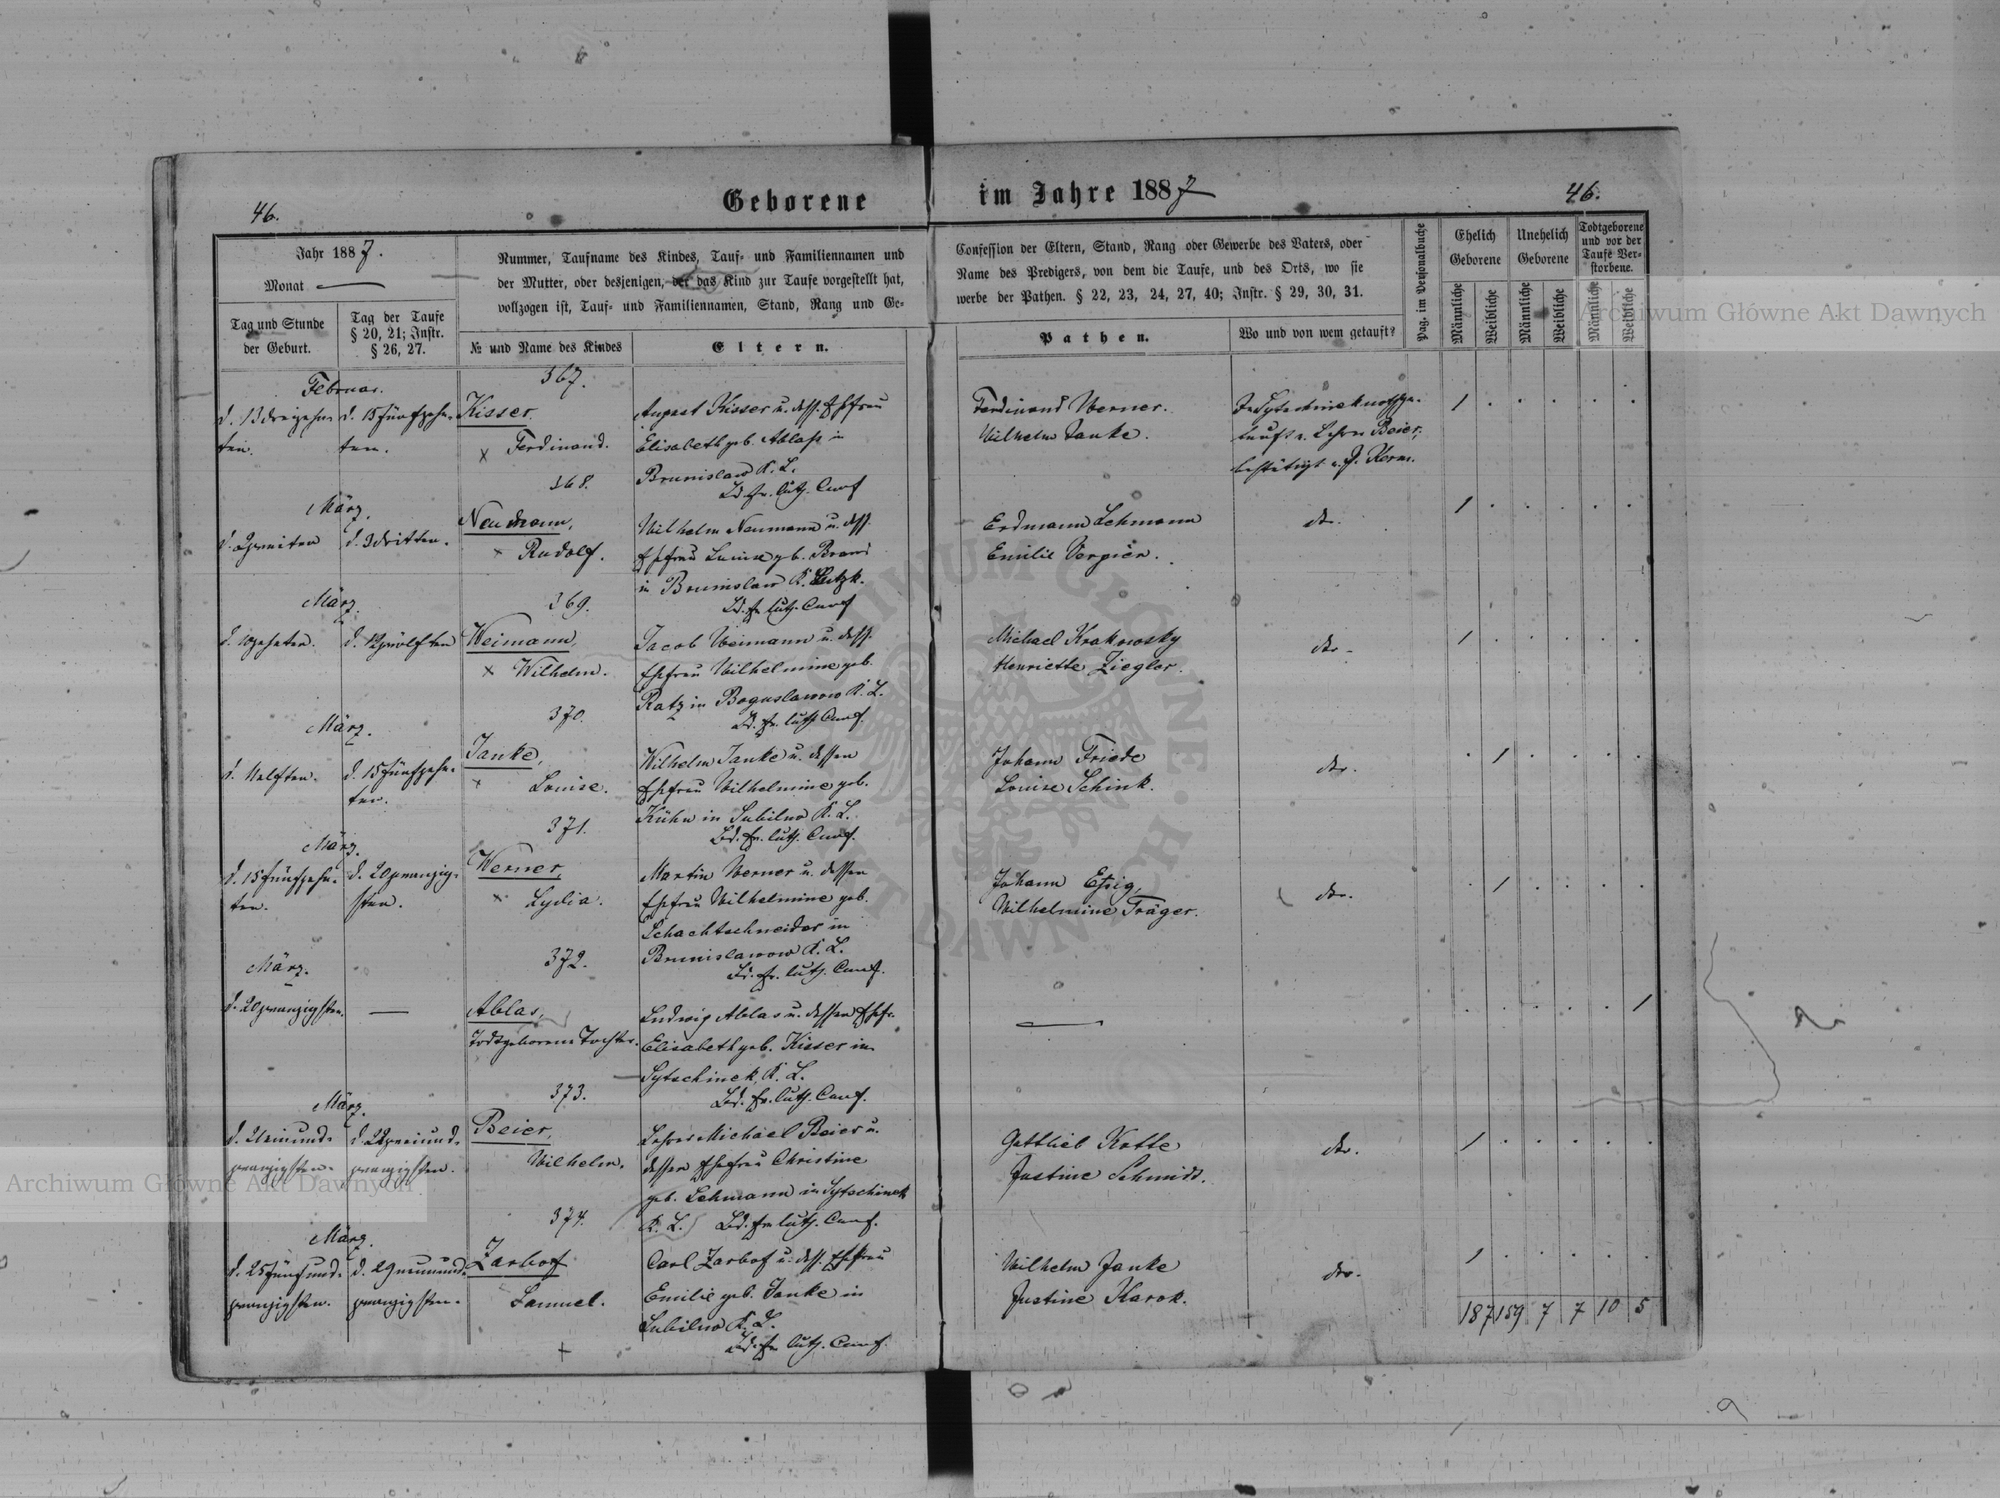 46.
Geborene im Jahre 1887
46.
Jahr 1887.
Monat
Tag und Stunde
der Geburt.
Tag der Taufe
§ 20, 21; Instr.
§ 26, 27.
Nummer, Taufname des Kindes, Tauf- und Familiennamen und
der Mutter, oder desjenigen, der das Kind zur Taufe vorgestellt hat,
vollzogen ist, Tauf- und Familiennamen, Stand, Rang und Ge-
№ und Name des Kindes
Eltern.
Confession der Eltern, Stand, Rang oder Gewerbe des Vaters, oder
Name des Predigers, von dem die Taufe, und des Orts, wo sie
werbe der Pathen. § 22, 23, 24, 27, 40; Instr. § 29, 30, 31.
Pathen.
Wo und von wem getauft?
Pag. im Personalbuche
Ehelich
Geborene
Unehelich
Geborene
Todtgeborene
und vor der
Taufe Ver-
storbene.
Männliche
Weibliche
Männliche
Weibliche
Männliche
Weibliche
Februar.
d. 13 dreizehn-
ten.
d. 15 fünfzehn-
ten.
367.
Kisser
× Ferdinand.
August Kisser u. dess. Ehefrau
Elisabeth geb. Ablass in
Brunislaw K. L.
Bd. ev. luth. Conf
Ferdinand Werner.
Wilhelm Janke.
In Sytschinek nothge-
tauft v. Lehrer Beier,
bestätigt v. P.
März.
d. 2 zweiten
d. 3 dritten.
368.
Neumann,
× Rudolf.
Wilhelm Neumann u. dess.
Ehefrau Luise geb. Brand
in Brunislaw K. Lutzk.
Bd. ev. luth. Conf
Erdmann Lehmann
Emilie Vergien.
dto.
März.
d. 10 zehnten.
d. 12 zwölften
369.
Weimann,
× Wilhelm.
Jacob Weimann u. dess.
Ehefrau Wilhelmine geb.
Ratz in Boguslawow K. L.
Bd. ev. luth Conf.
Michael Krakowsky
Henriette Ziegler.
dto.
März.
d. 11 elften.
d. 15 fünfzehn-
ten.
370.
Janke,
× Louise.
Wilhelm Janke u. dessen
Ehefrau Wilhelmine geb.
Kühn in Lubilno K. L.
Bd. ev. luth. Conf.
Johann Friede
Louise Schink.
dto.
März.
d. 15 fünfzehn-
ten.
d. 20 zwanzig-
sten.
371.
Werner,
× Lydia.
Martin Werner u. dessen
Ehefrau Wilhelmine geb.
Schachtschneider in
Brunislawow K. L.
Bd. ev. luth. Conf.
Johann Essig,
Wilhelmine Träger.
dto.
März.
d. 20 zwanzigsten.
—
372.
Ablas,
Todtgeborene Tochter.
Ludwig Ablas u. dessen Ehefr.
Elisabeth geb. Kisser in
Sytschinek, K. L.
Bd. ev. luth. Conf.
—
März.
d. 21 einund-
zwanzigsten.
d. 22 zweiund-
zwanzigsten.
373.
Beier,
Wilhelm.
Lehrer Michael Beier u.
dessen Ehefrau Christine
geb. Lehmann in Sytschinek
K. L. Bd. ev. luth. Conf.
Gottlieb Kottke
Justine Schmidt.
dto.
März.
d. 25 fünfund-
zwanzigsten.
d. 29 neunund-
zwanzigsten.
374.
Zarbof
Samuel.
Carl Zarbof u. dess. Ehefrau
Emilie geb. Janke in
Lubilno K. L.
Bd. ev. luth. Conf.
Wilhelm Janke
Justine Karok.
dto.
187 159 7 7 10 5
Archiwum Główne Akt Dawnych
Archiwum Główne Akt Dawnych